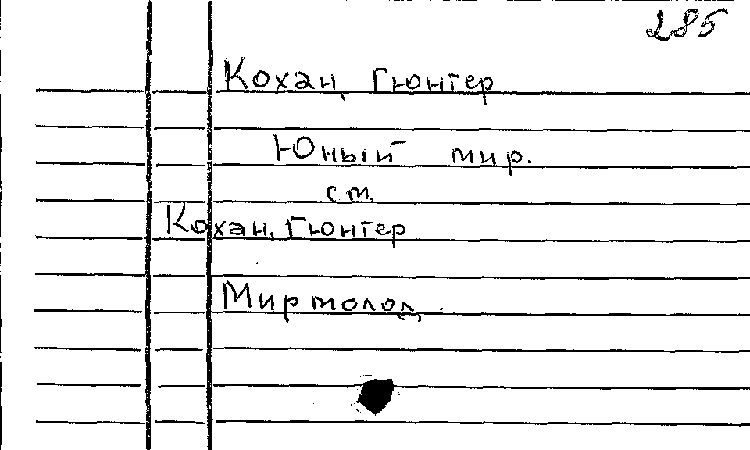 285
Кохан, Гюнтер
Юный мир.
см.
Кохан, Гюнтер
Мир молод.